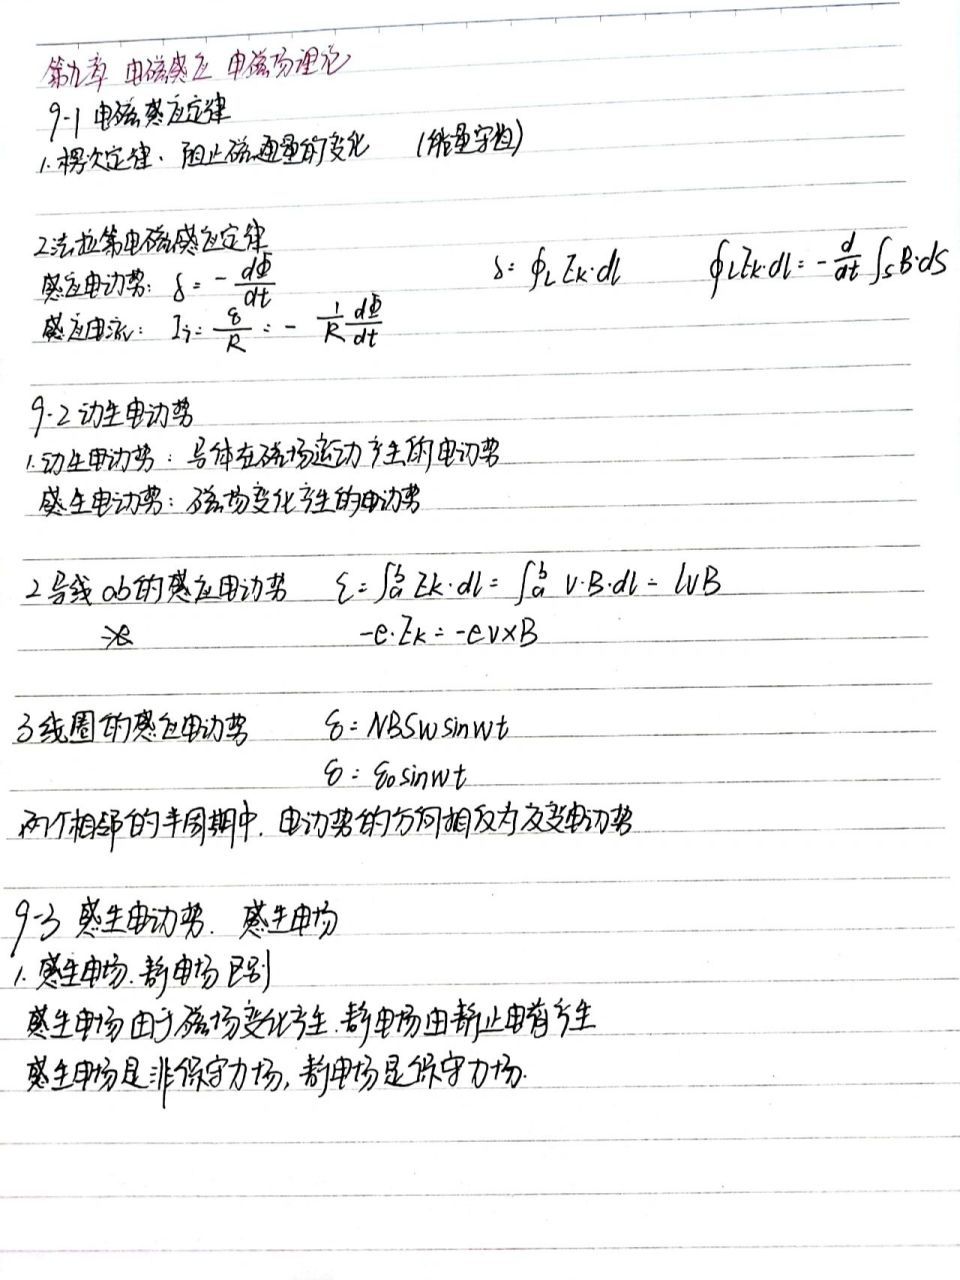 第九章 电磁感应 电磁场理论
9-1 电磁感应定律
1. 楞次定律. 阻止磁通量的变化 (能量守恒)
2 法拉第电磁感应定律
感应电动势: ε = -dΦ/dt ε = ∮L Ek·dl ∮L Ek·dl = -d/dt ∫s B·dS
感应电流: Ii = ε/R = - 1/R dΦ/dt
9-2 动生电动势
1. 动生电动势: 导体在磁场运动产生的电动势
感生电动势: 磁场变化产生的电动势
2 导线ab的感应电动势 ε = ∫ₐᵇ Ek·dl = ∫ₐᵇ v·B·dl = lvB
-e·Ek = -ev×B
3 线圈的感应电动势 ε = NBSωsinωt
ε = ε₀sinωt
两个相邻的半周期中, 电动势的方向相反为交变电动势
9-3 感生电动势. 感生电场
1. 感生电场. 静电场区别
感生电场由于磁场变化产生. 静电场由静止电荷产生
感生电场是非保守力场, 静电场是保守力场.